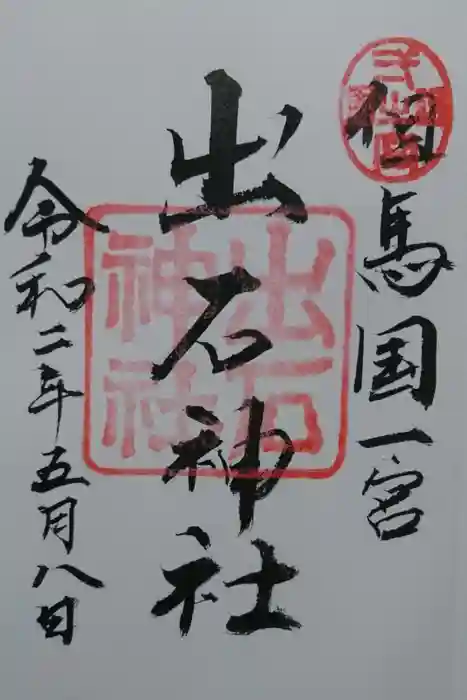 但馬国一宮
出石神社
令和二年五月八日
出石神社